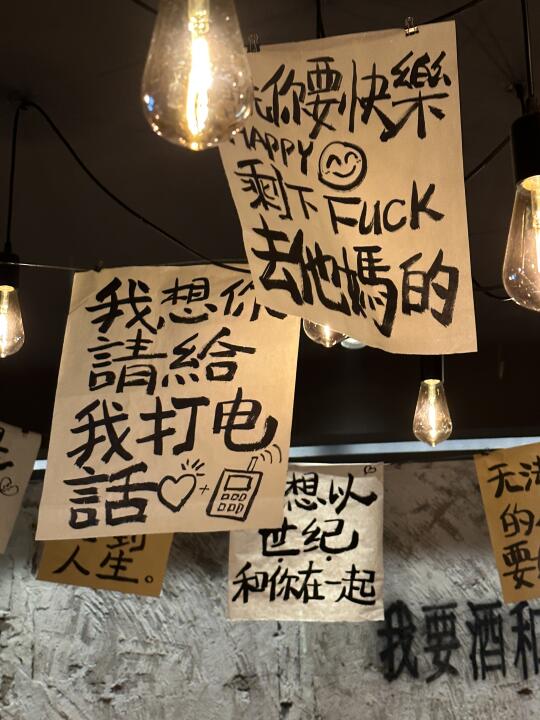 你要快樂
HAPPY
剩下FUCK
去他媽的
我想你
請給
我打电
話
+
想以
世纪
和你在一起
人生。
无法
的
要
我要酒和